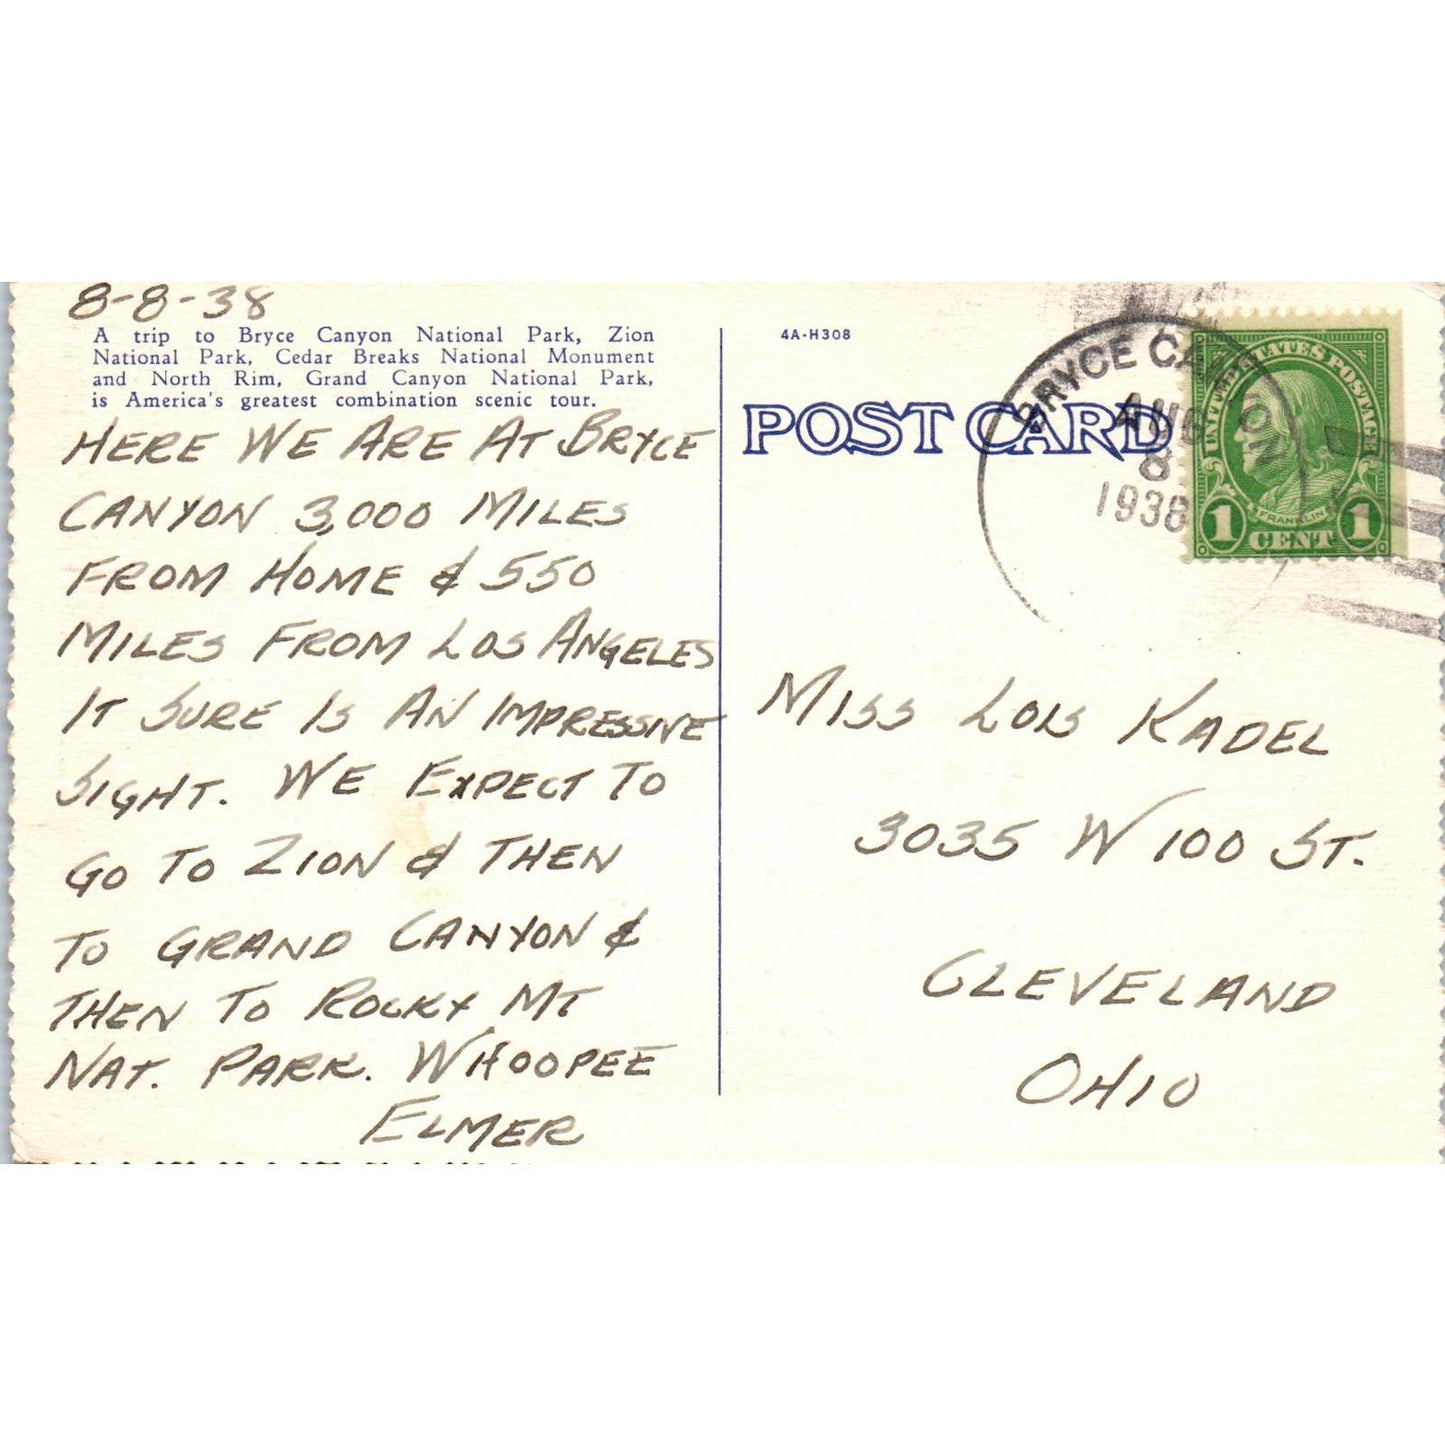 8-8-38
A trip to Bryce Canyon National Park, Zion
National Park, Cedar Breaks National Monument
and North Rim, Grand Canyon National Park,
is America's greatest combination scenic tour.
HERE WE ARE AT BRYCE
CANYON 3,000 MILES
FROM HOME & 550
MILES FROM LOS ANGELES
IT SURE IS AN IMPRESSIVE
SIGHT. WE EXPECT TO
GO TO ZION & THEN
TO GRAND CANYON &
THEN TO ROCKY MT
NAT. PARK. WHOOPEE
ELMER
4A-H308
POST CARD
BRYCE CANYON
AUG
8
1938
UNITED STATES POSTAGE
FRANKLIN
1 CENT 1
MISS LOIS KADEL
3035 W 100 ST.
CLEVELAND
OHIO